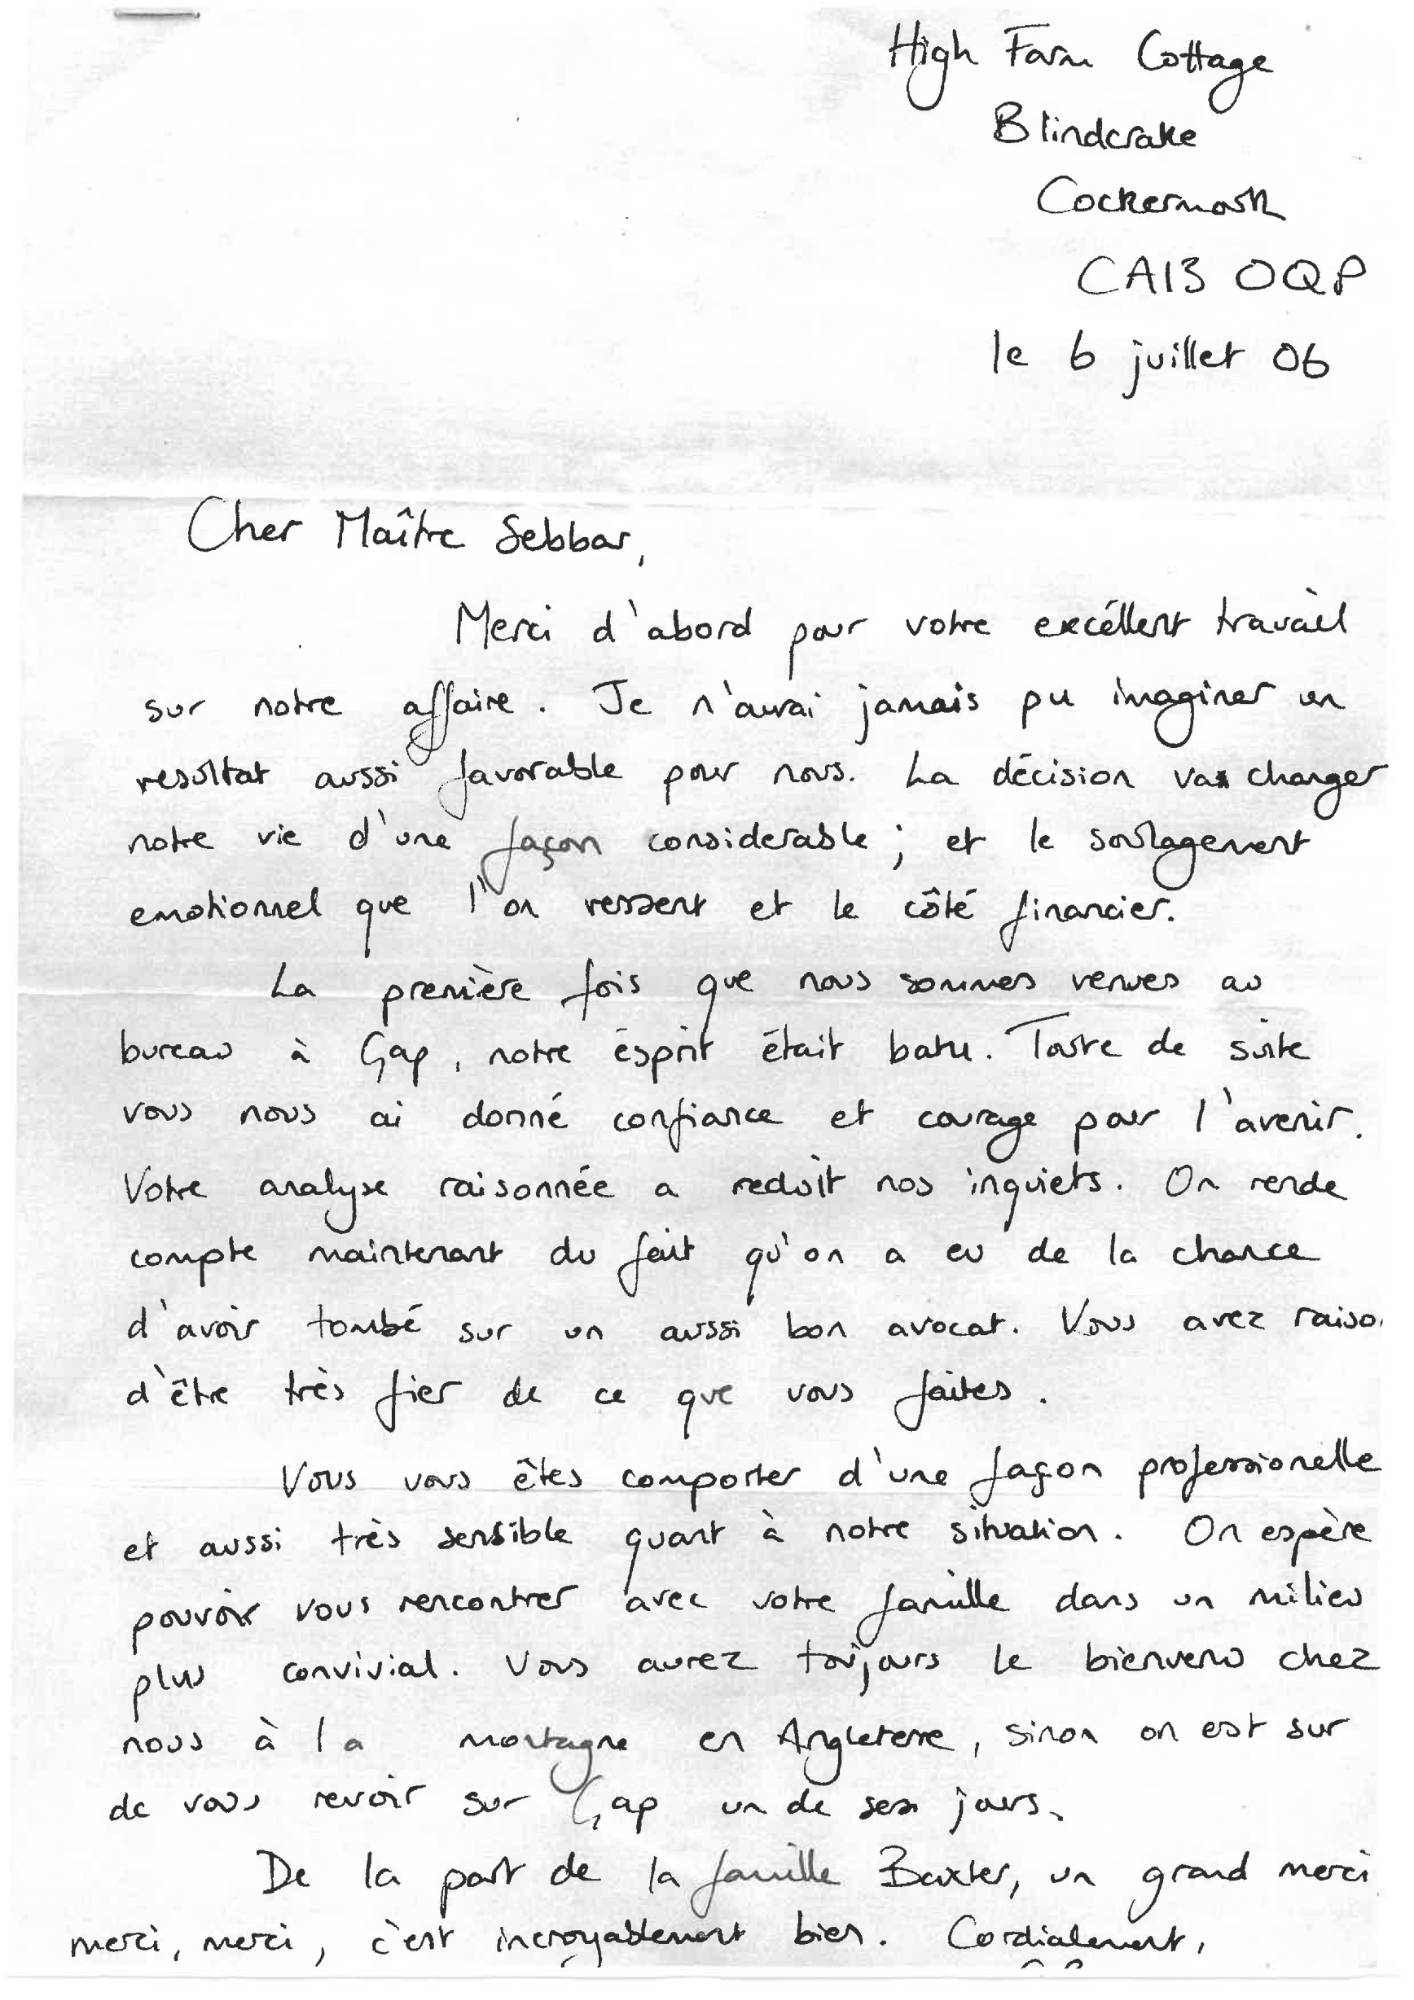 High Farm Cottage
Blindcrake
Cockermouth
CA13 0QP
le 6 juillet 06
Cher Maître Sebbar,
Merci d'abord pour votre excéllent travail
sur notre affaire. Je n'aurai jamais pu imaginer un
resultat aussi favorable pour nous. La décision va changer
notre vie d'une façon considerable; et le soulagement
emotionnel que l'on ressent et le côté financier.
La première fois que nous sommes venues au
bureau à Gap, notre ésprit était batu. Toute de suite
vous nous ai donné confiance et courage pour l'avenir.
Votre analyse raisonnée a reduit nos inquiets. On rende
compte maintenant du fait qu'on a eu de la chance
d'avoir tombé sur un aussi bon avocat. Vous avez raiso
d'être très fier de ce que vous faites.
Vous vous êtes comporter d'une façon professionelle
et aussi très sensible quant à notre situation. On espère
pouvoir vous rencontrer avec votre famille dans un milieu
plus convivial. Vous aurez toujours le bienvenu chez
nous à la montagne en Angleterre, sinon on est sur
de vous revoir sur Gap un de ses jours.
De la part de la famille Baxter, un grand merci
merci, merci, c'est incroyablement bien. Cordialement,